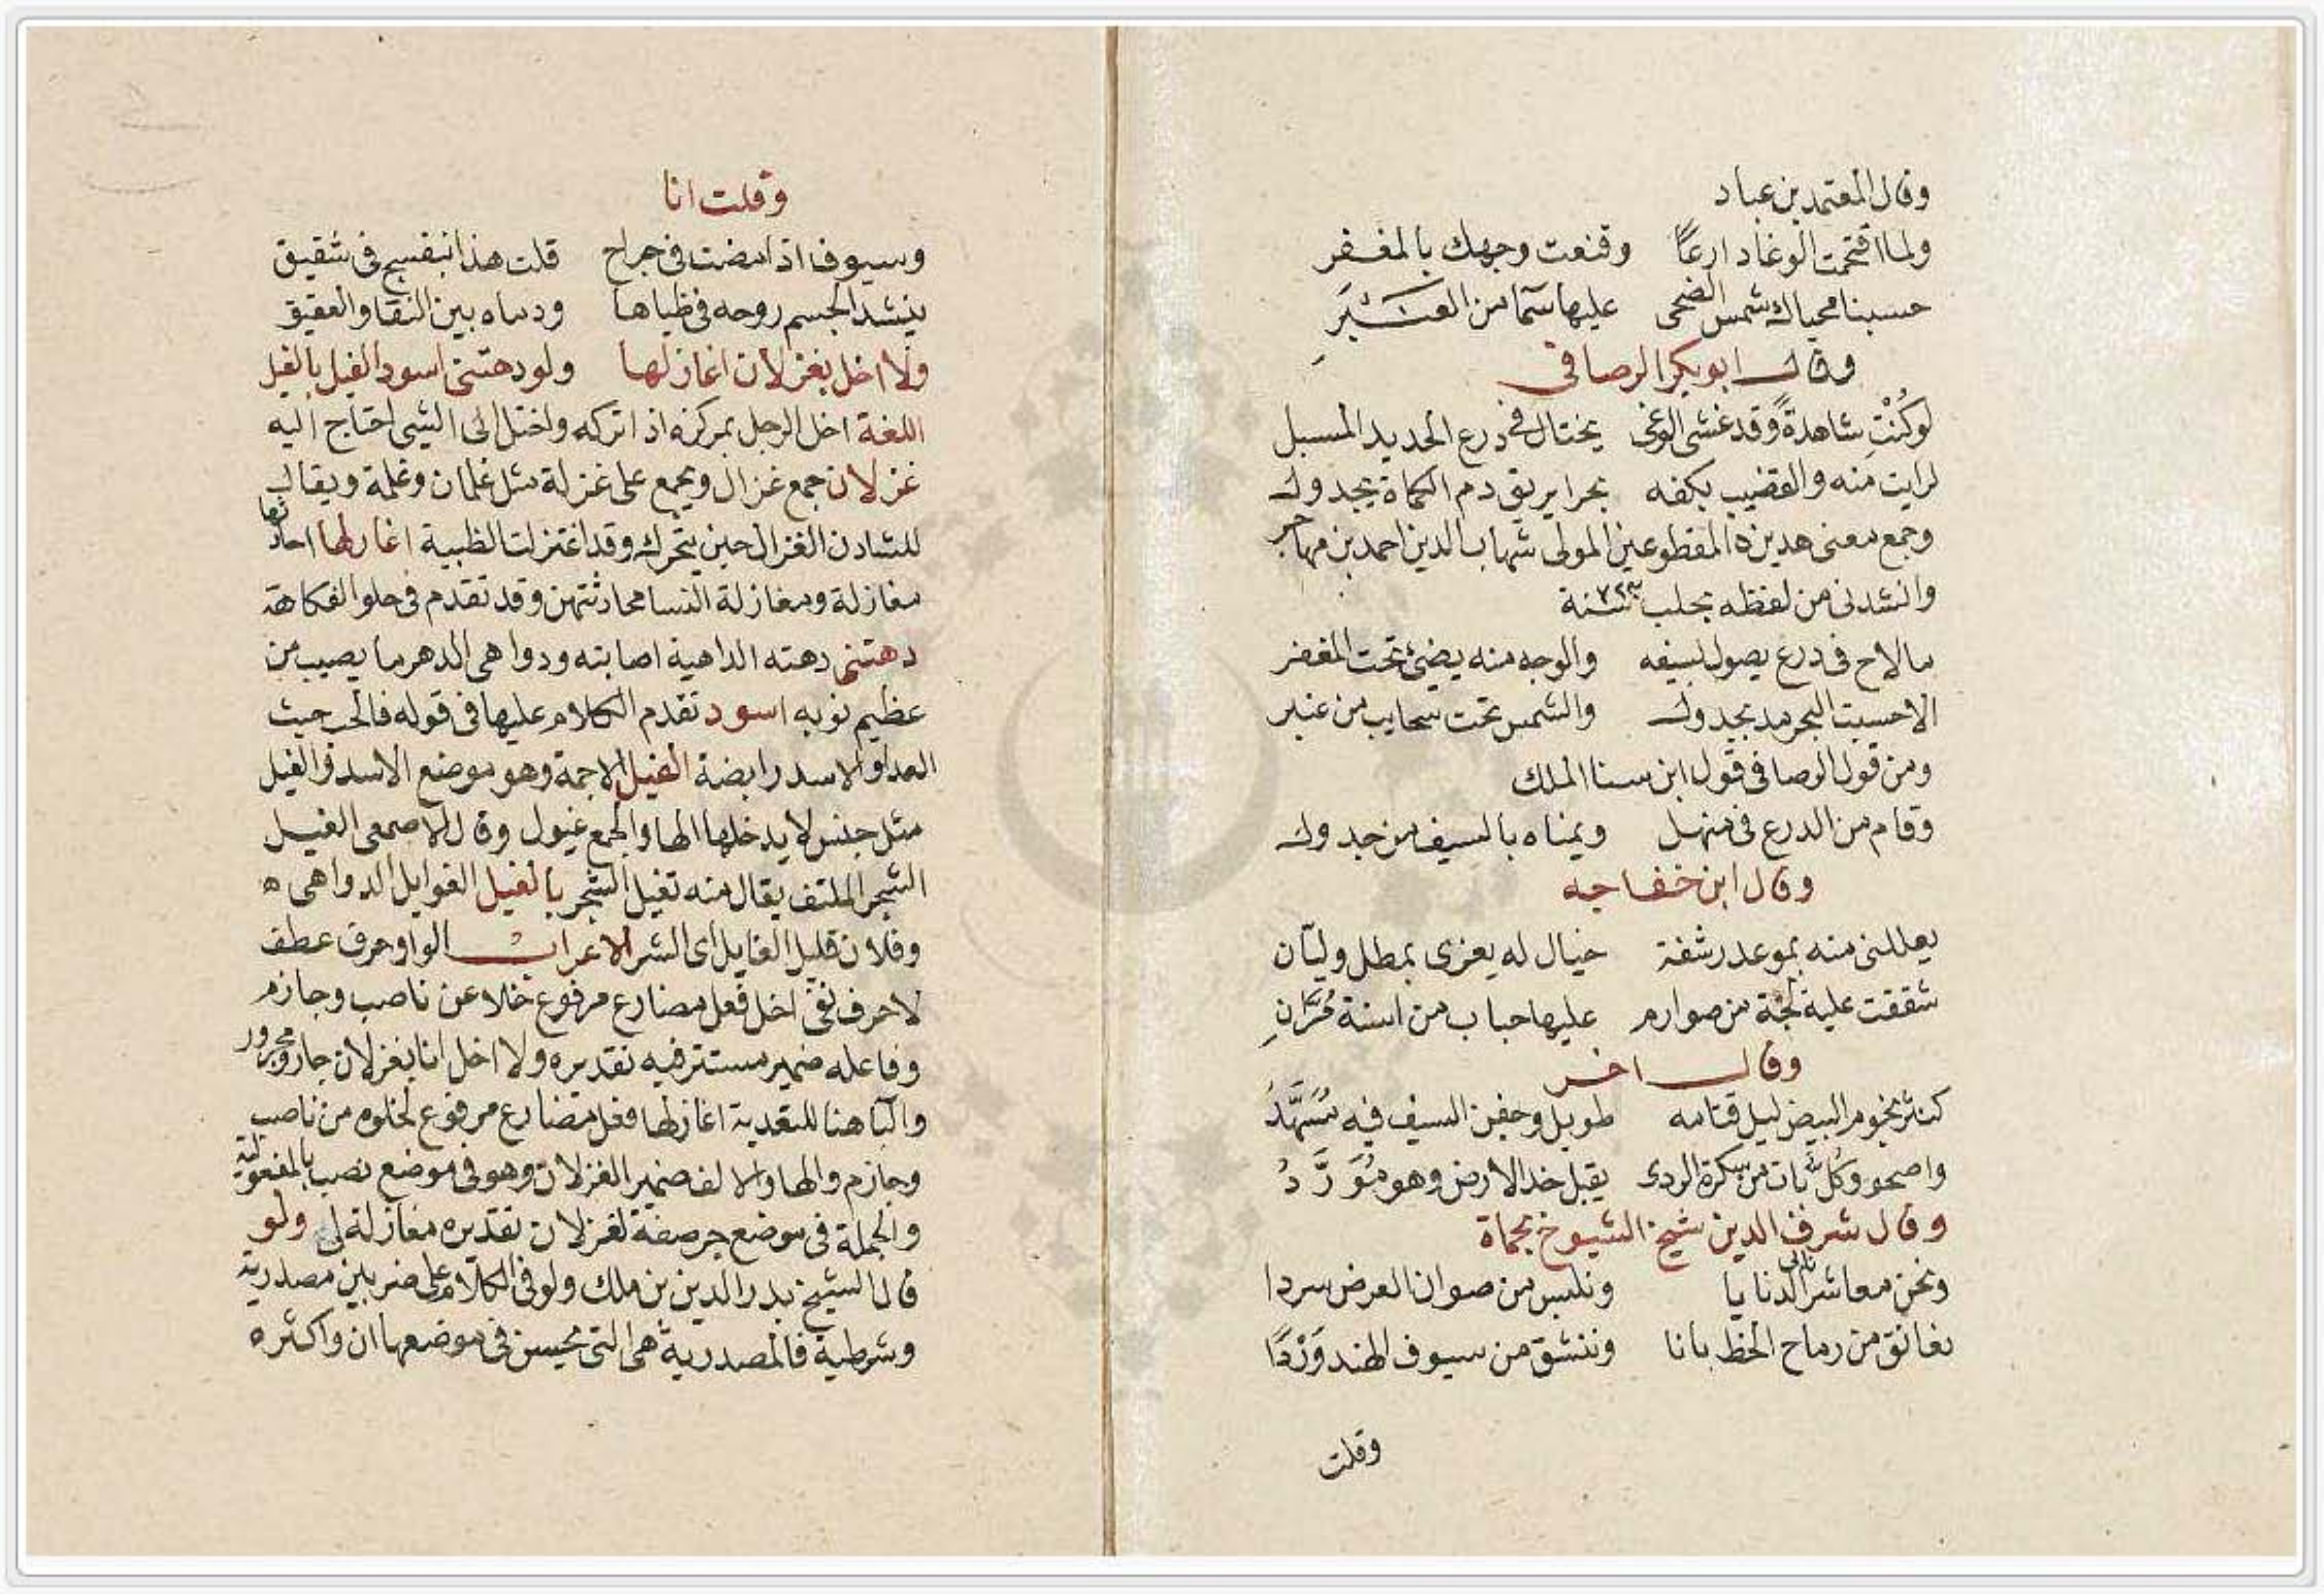 وقال المعتمد بن عباد
ولما اقتحمت الوغا دارعًا وقنعت وجهك بالمغفر
حسبنا محياك شمس الضحى عليها سما من العنبر
وقال ابو بكر الرصافى
لو كُنْتِ شاهدةً وقد غشى الوغى يختال فى درع الحديد المسبل
لرايت منه والقضيب بكفه بحرا يريق دم الكماة بجدول
وجمع معنى هدين المقطوعين المولى شهاب الدين احمد بن مهاجر
وانشدنى من لفظه بحلب سنة
ما لاح فى درع يصول بسيفه والوجه منه يضئ تحت المغفر
الا حسبت البحر مد بجدول والشمس تحت سحايب من عنبر
ومن قول الرصافى قول ابن سنا الملك
وقام من الدرع فى منهل ويمناه بالسيف من جدول
وقال ابن خفاجه
يعللنى منه بموعد رشفة خيال له يغزى بمطل وليّان
شققت عليه لجّة من صوارم عليها حباب من اسنة مُرَّانِ
وقال اخر
كنثر نجوم البيض ليل قتامه طويل وجفن السيف فيه مُسَهَّدُ
واصحو وكل بات من سكرة الردى يقبل خد الارض وهو مُوَرَّدُ
وقال شرف الدين شيخ الشيوخ بحماة
ونحن معاشر نابى الدنايا ونلبس من صوان العرض سردا
نعانق من رماح الخط بانا وننشق من سيوف الهند وَرْدًا
وقلت
وقلت انا
وسيوف اذا امضت فى جراح قلت هذا بنفسج فى شقيق
ينشد الجسم روحه فى ظباها ودماه بين النقا والعقيق
ولا اخل بغزلان اغازلها ولو دهتنى اسود الغيل بالغيل
اللغة اخل الرجل بمركزه اذا تركه واختل الى الشى احتاج اليه
غزلان جمع غزال ويجمع على غزلة مثل غلمان وغلمة ويقال
للشادن الغزال حين يتحرك وقد اغتزلت الظبية اغازلها
مغازلة ومغازلة النسا محادثتهن وقد تقدم فى حلو الفكاهة
دهتنى دهته الداهية اصابته ودواهى الدهر ما يصيب من
عظيم نوبه اسود تقدم الكلام عليها فى قوله فالحب حيث
العدا والاسد رابضة الغيل الاجمة وهو موضع الاسد والغيل
مثل جنس لا يدخلها الها والجمع غيول وقال الاصمعى الغيل
الشجر الملتف يقال منه تغيل الشجر بالغيل الغوايل الدواهى ه
وفلان قليل الغايل اى الشر الاعراب الواو حرف عطف
لا حرف نفى اخل فعل مضارع مرفوع خلا عن ناصب وجازم
وفاعله ضمير مستتر فيه تقديره ولا اخل انا بغزلان جار ومجرور
والبا هنا للتعدية اغازلها فعل مضارع مرفوع لخلوه من ناصب
وجازم والها والالف ضمير الغزلان وهو فى موضع نصب بالمفعولية
والجملة فى موضع جر صفة لغزلان تقديره مغازلة لى ولو
قال الشيخ بدر الدين بن ملك ولو فى الكلام على ضربين مصدرية
وشرطية فالمصدرية هى التى يحسن فى موضعها ان واكثره